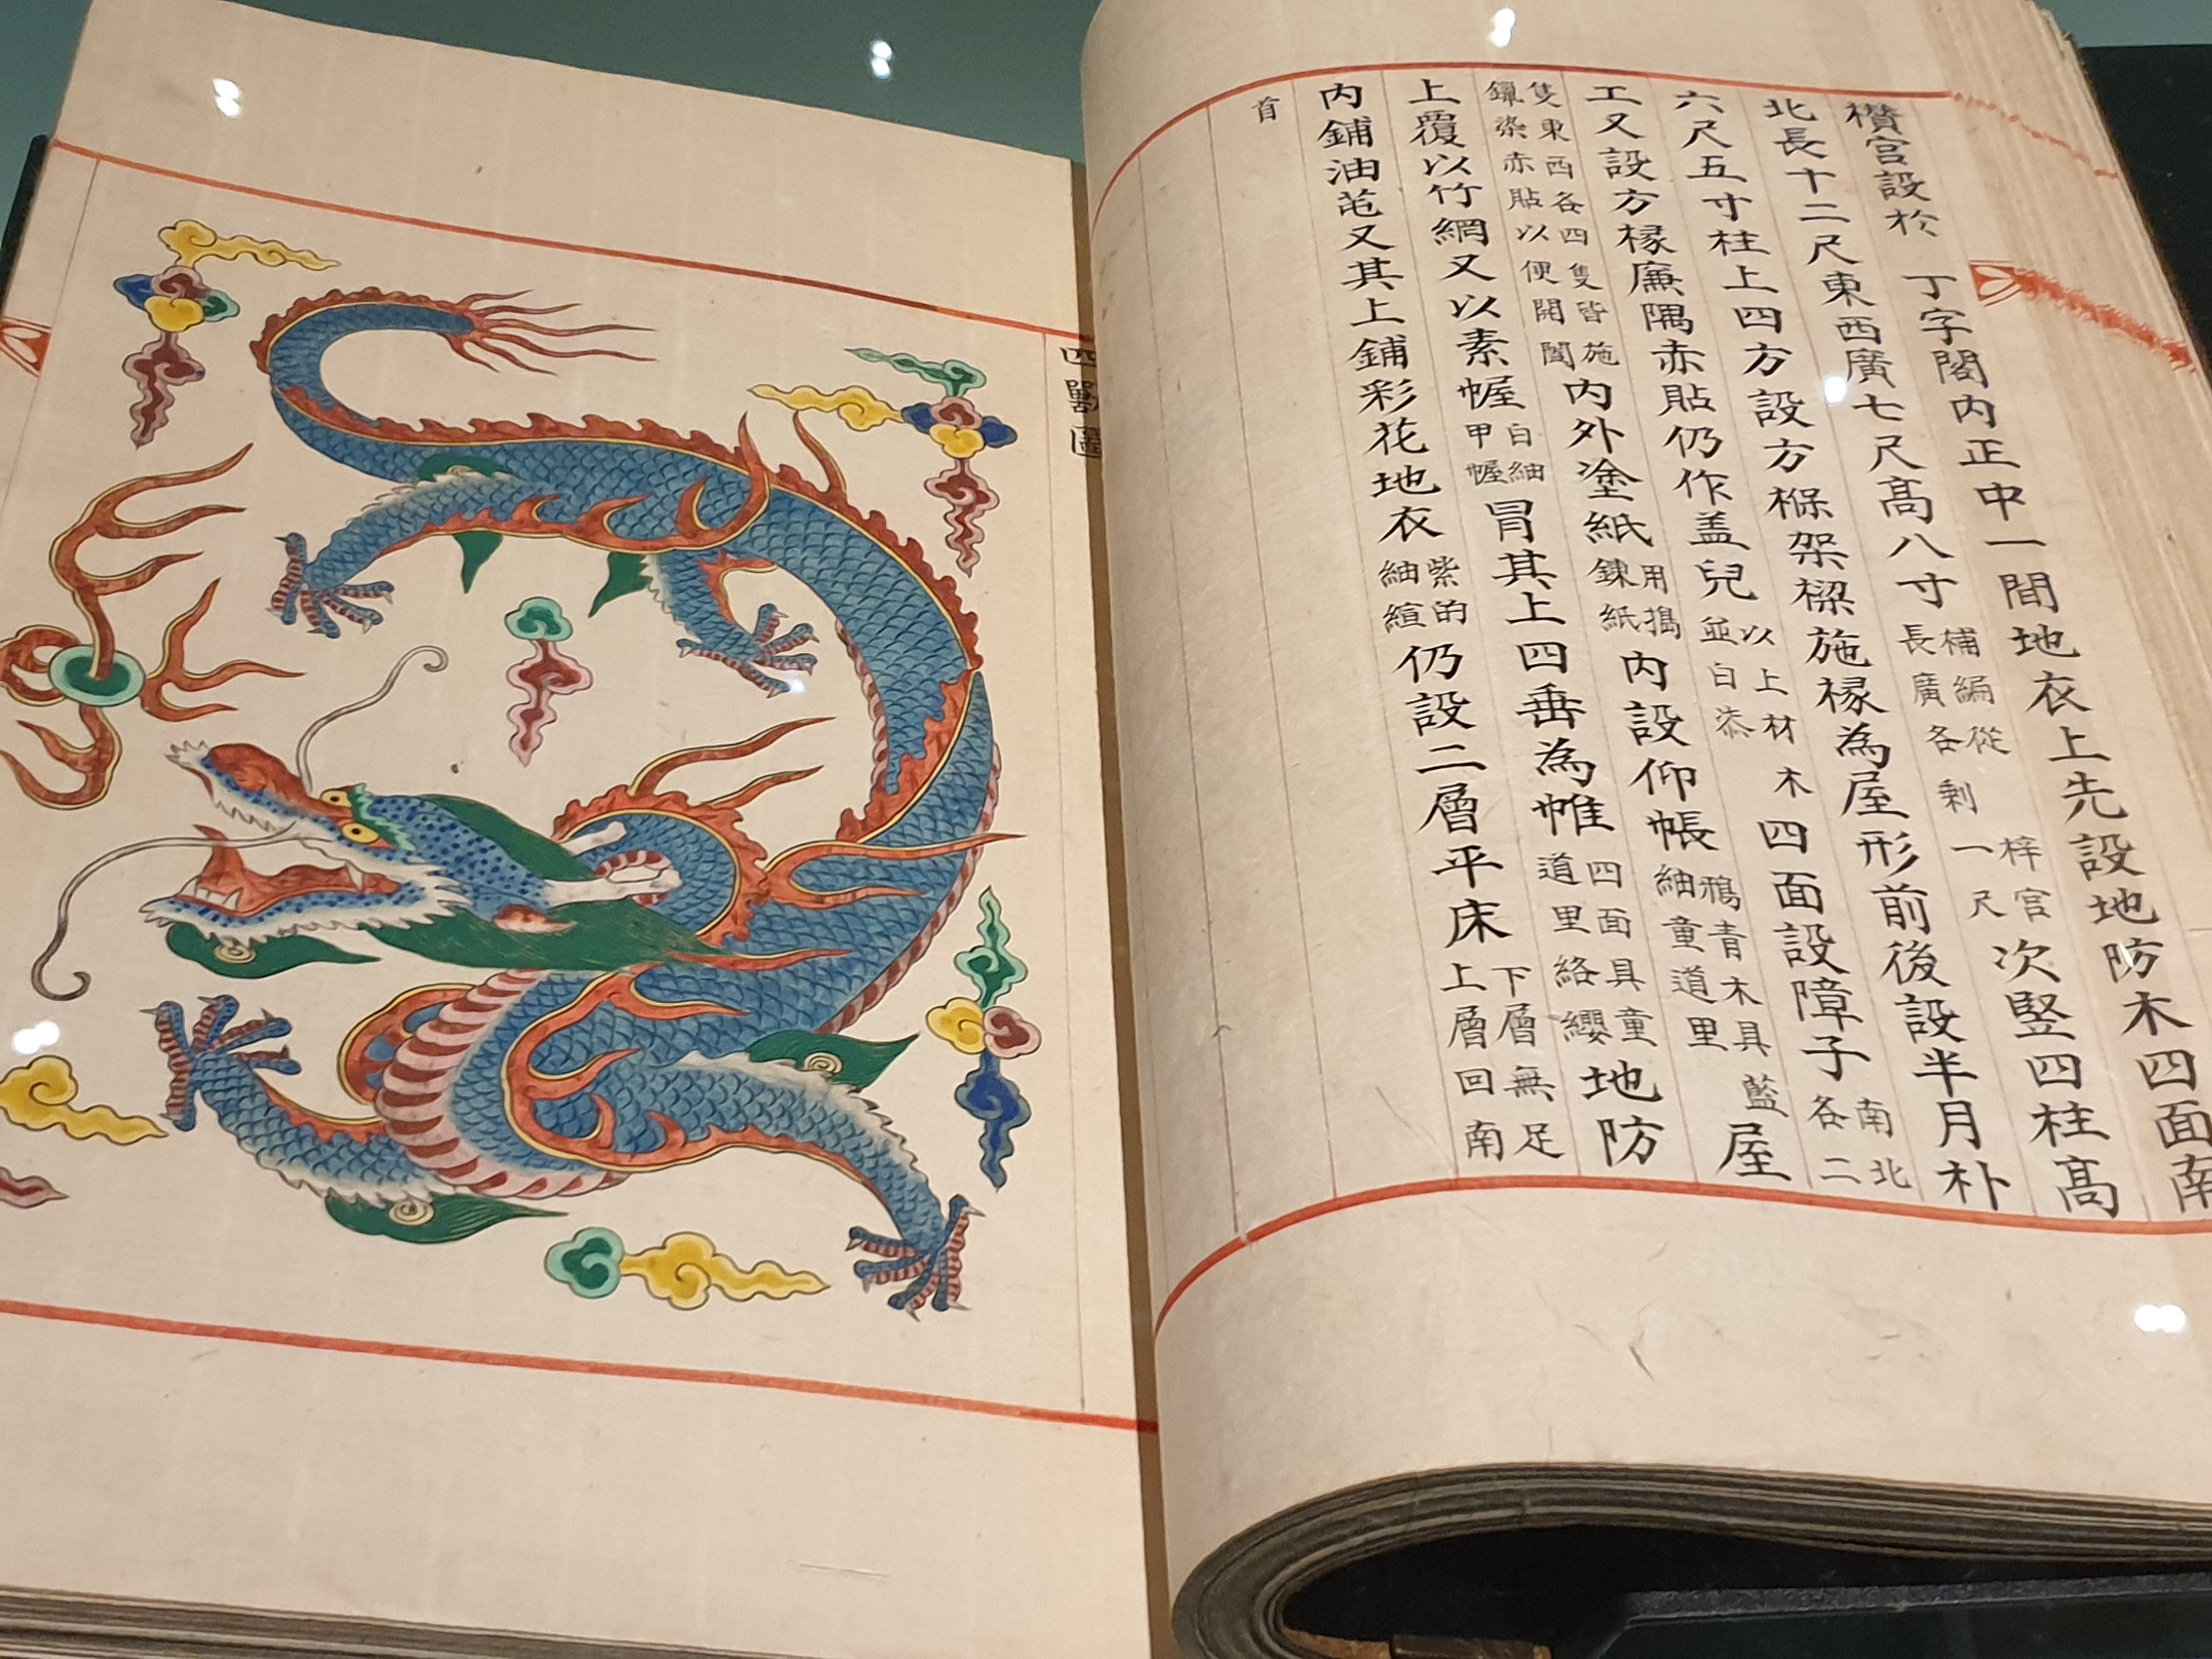 欑宮設於 丁字閣内正中一間地衣上先設地防木四面南
北長十二尺東西廣七尺高八寸補編從梓宮長廣各剩一尺次竪四柱高
六尺五寸柱上四方設方架樑施椽為屋形前後設半月朴
工又設方椽廉隅赤貼仍作盖兒以上材木並白漆四面設障子南北各二
隻東西各四隻皆施鑞染赤貼以便開闔内外塗紙用搗鍊紙内設仰帳鴉青木具藍紬童道里屋
上覆以竹網又以素幄白紬甲幄冒其上四垂為帷四面具童道里絡纓地防
内鋪油芚又其上鋪彩花地衣紫的紬縇仍設二層平床下層無足上層回南
首
四獸圖